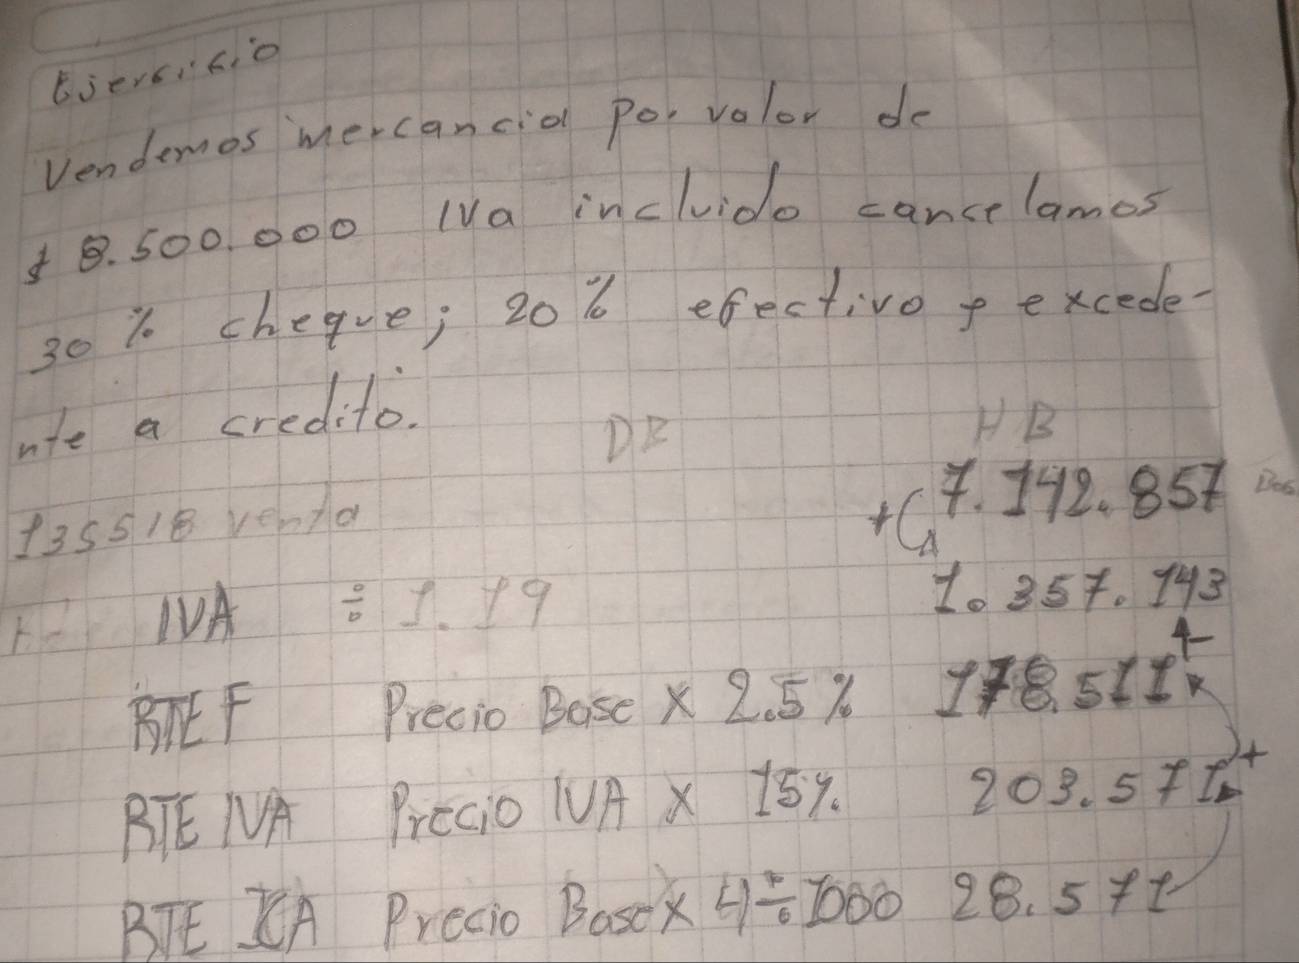 Ejercicio
Vendemos mercancia por valor de
$ 8.500.000 IVa incluido cancelamos
30 % cheque; 20 % efectivo y excede-
nte a credito.
DB HB
+( 7.142.857
135518 venta
IVA ÷ 1.19 1.357.143
RTE F Precio Base x 2.5 % 178.511
RTE IVA Precio IVA x 15 %. 203.571
RTE ICA Precio Base x 4 ÷ 1000 28.571